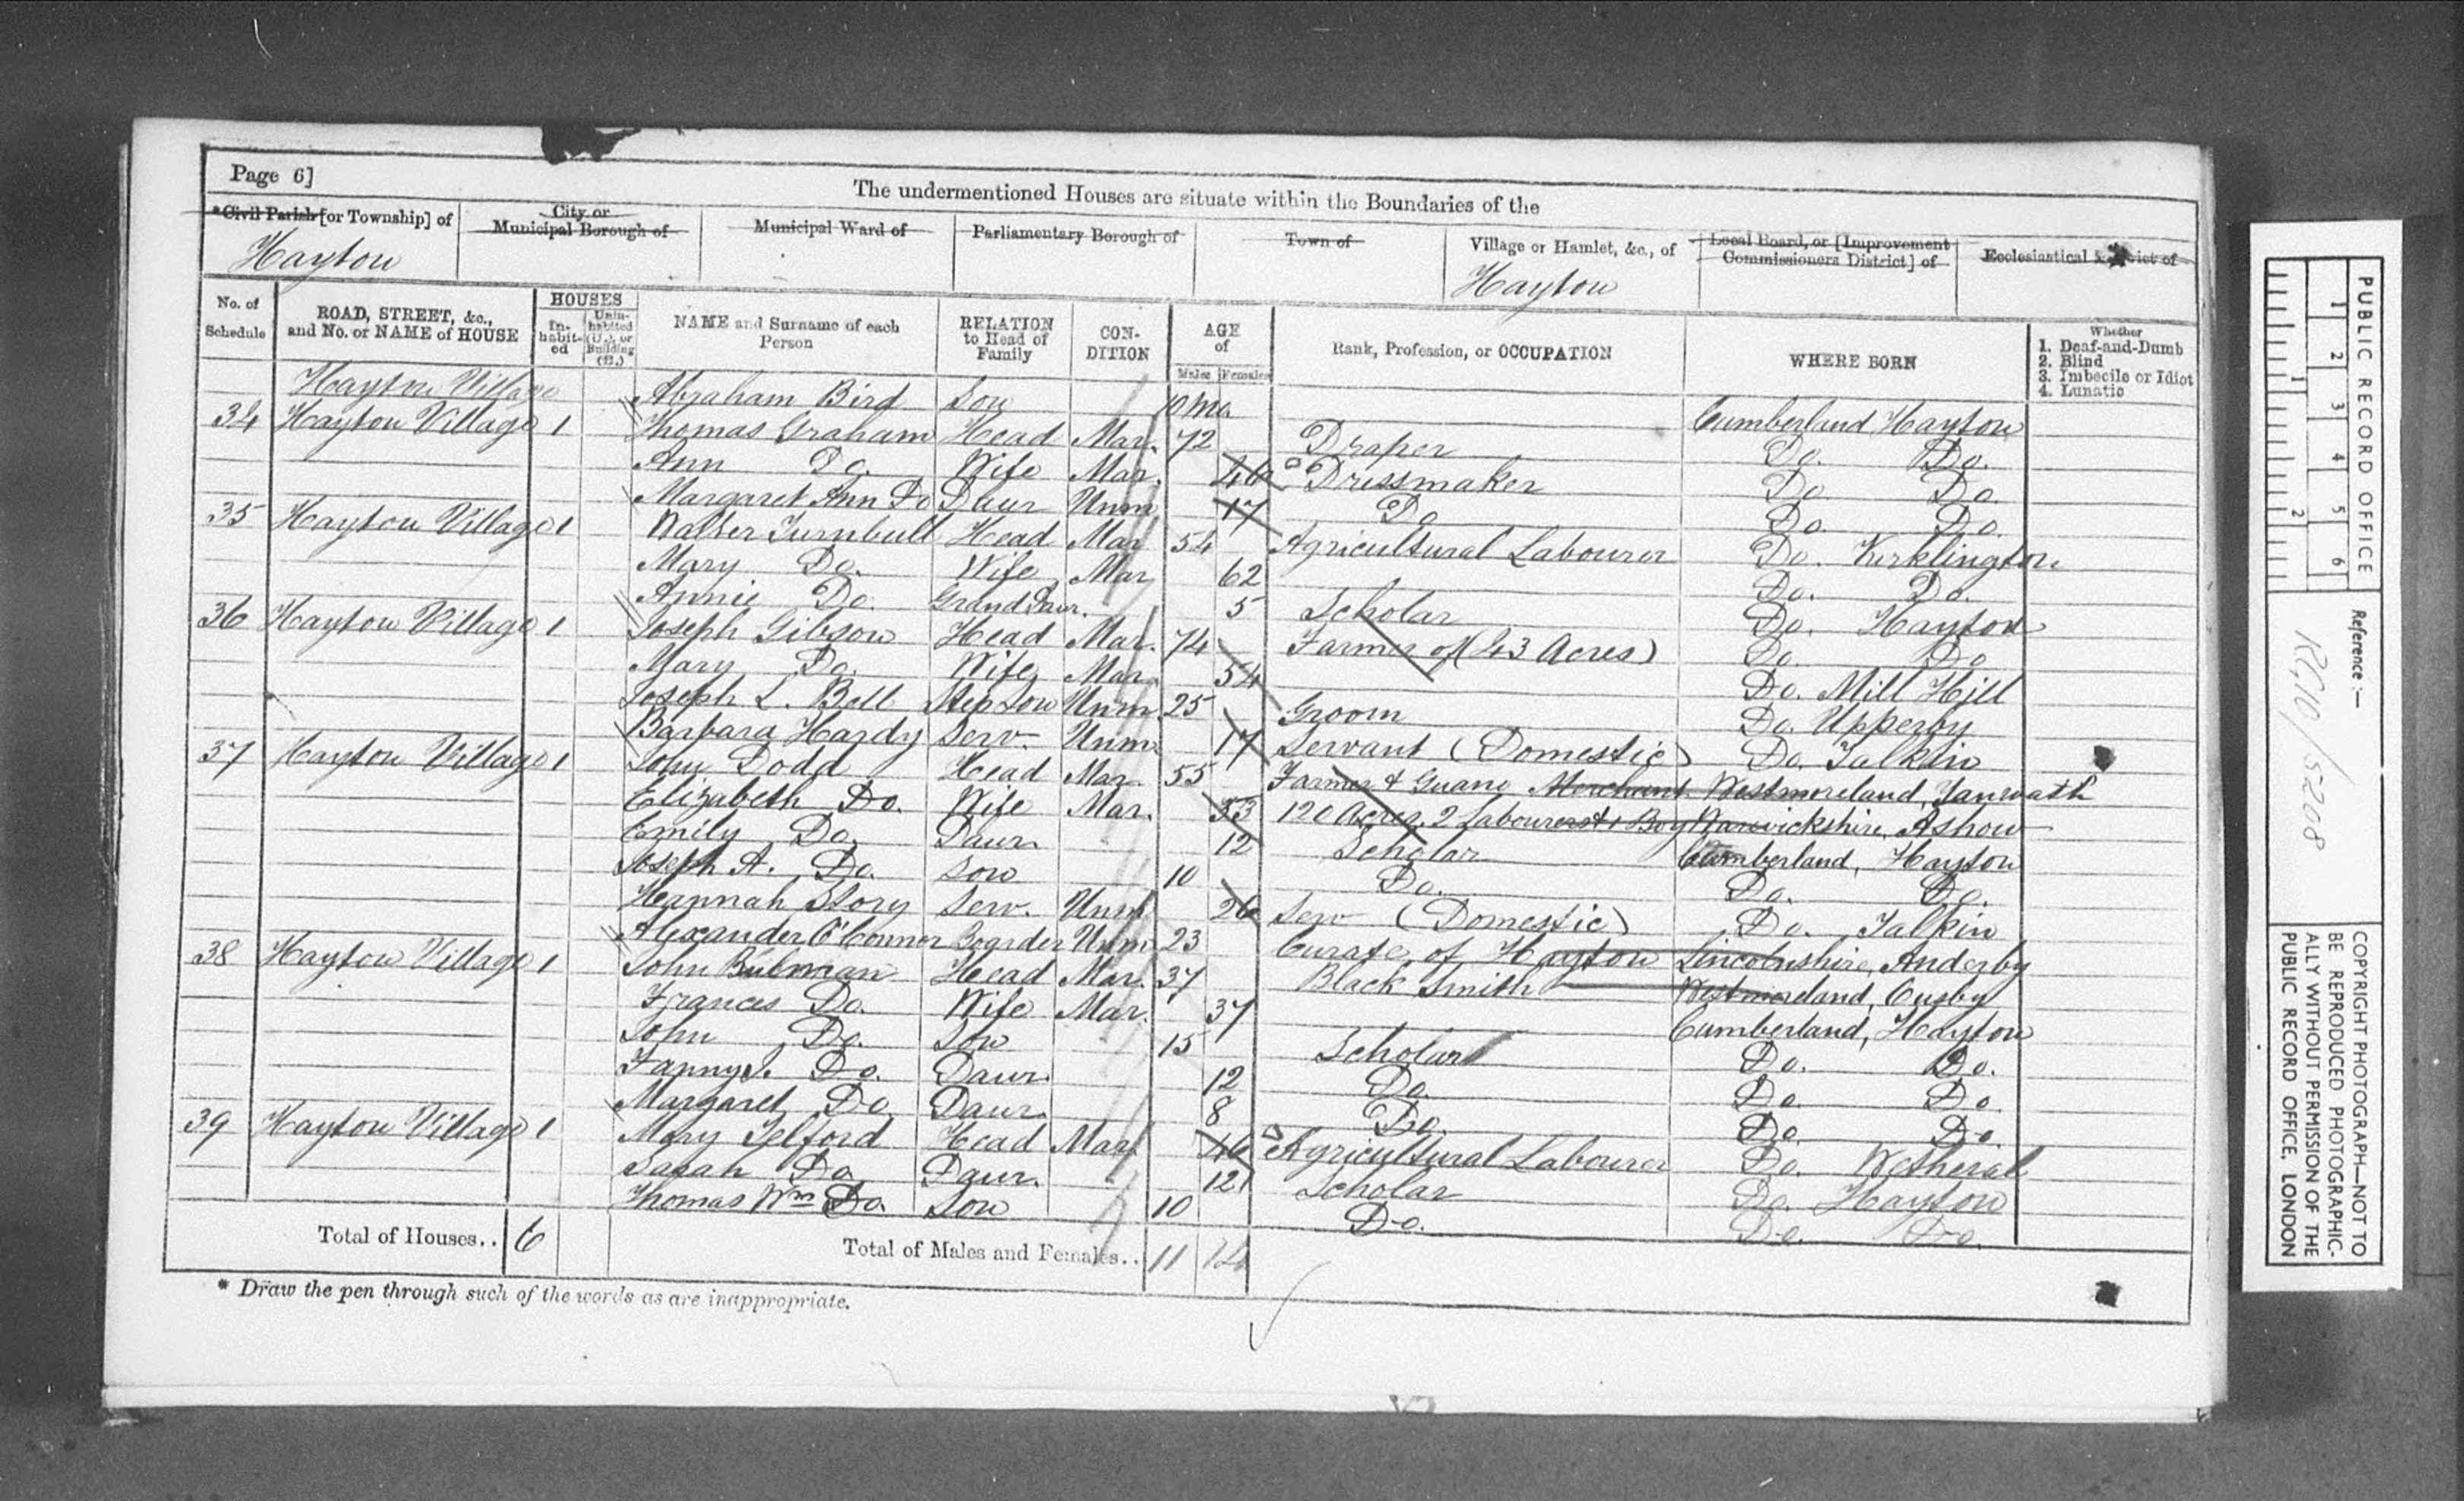 Page 6]
The undermentioned Houses are situate within the Boundaries of the
*Civil Parish [or Township] of
City or Municipal Borough of
Municipal Ward of
Parliamentary Borough of
Town of
Village or Hamlet, &c., of
Local Board, or [Improvement Commissioners District] of
Ecclesiastical District of
Hayton
Hayton
No. of Schedule
ROAD, STREET, &c., and No. or NAME of HOUSE
HOUSES
In-habit-ed
Unin-habited (U.), or Building (B.)
NAME and Surname of each Person
RELATION to Head of Family
CON-DITION
AGE of
Males Females
Rank, Profession, or OCCUPATION
WHERE BORN
Whether
1. Deaf-and-Dumb
2. Blind
3. Imbecile or Idiot
4. Lunatic
Hayton Village Abraham Bird Son 10 mo. Cumberland Hayton
34 Hayton Village 1 Thomas Graham Head Mar. 72 Draper Do. Do.
Ann Do. Wife Mar. 46 Dressmaker Do. Do.
Margaret Ann Do Daur Unm 17 Do Do. Do.
35 Hayton Village 1 Walter Turnbull Head Mar 54 Agricultural Labourer Do. Kirklington
Mary Do. Wife Mar 62 Do. Do.
Annie Do. Grand Daur. 5 Scholar Do. Hayton
36 Hayton Village 1 Joseph Gibson Head Mar. 74 Farmer of (43 Acres) Do. Do
Mary Do. Wife Mar. 54 Do. Mill Hill
Joseph L. Bell Step Son Unm 25 Groom Do. Upperby
Barbara Hardy Serv. Unm 17 Servant (Domestic) Do. Talkin
37 Hayton Village 1 John Dodd Head Mar. 55 Farmer & Guano Merchant Westmoreland, Yanwath
Elizabeth Do. Wife Mar. 53 120 Acres. 2 Labourers & 1 Boy Warwickshire, Ashow
Emily Do. Daur. 12 Scholar Cumberland, Hayton
Joseph A. Do. Son 10 Do. Do. Do.
Hannah Story Serv. Unm 26 Serv (Domestic) Do. Talkin
Alexander O'Connor Boarder Unm 23 Curate of Hayton Lincolnshire, Anderby
38 Hayton Village 1 John Bulman Head Mar. 37 Black Smith Westmoreland, Ousby
Frances Do. Wife Mar. 37 Cumberland, Hayton
John Do. Son 15 Scholar Do. Do.
Fanny J. Do. Daur. 12 Do. Do. Do.
Margaret Do Daur. 8 Do. Do. Do.
39 Hayton Village 1 Mary Telford Head Mar 46 Agricultural Labourer Do. Wetheral
Sarah Do Daur. 12 Scholar Do. Hayton
Thomas Wm Do. Son 10 Do. Do. Do.
Total of Houses.. 6
Total of Males and Females.. 11 14
* Draw the pen through such of the words as are inappropriate.
PUBLIC RECORD OFFICE
1 2 3 4 5 6
1 2
Reference :—
RG10/5208
COPYRIGHT PHOTOGRAPH—NOT TO
BE REPRODUCED PHOTOGRAPHIC-
ALLY WITHOUT PERMISSION OF THE
PUBLIC RECORD OFFICE, LONDON